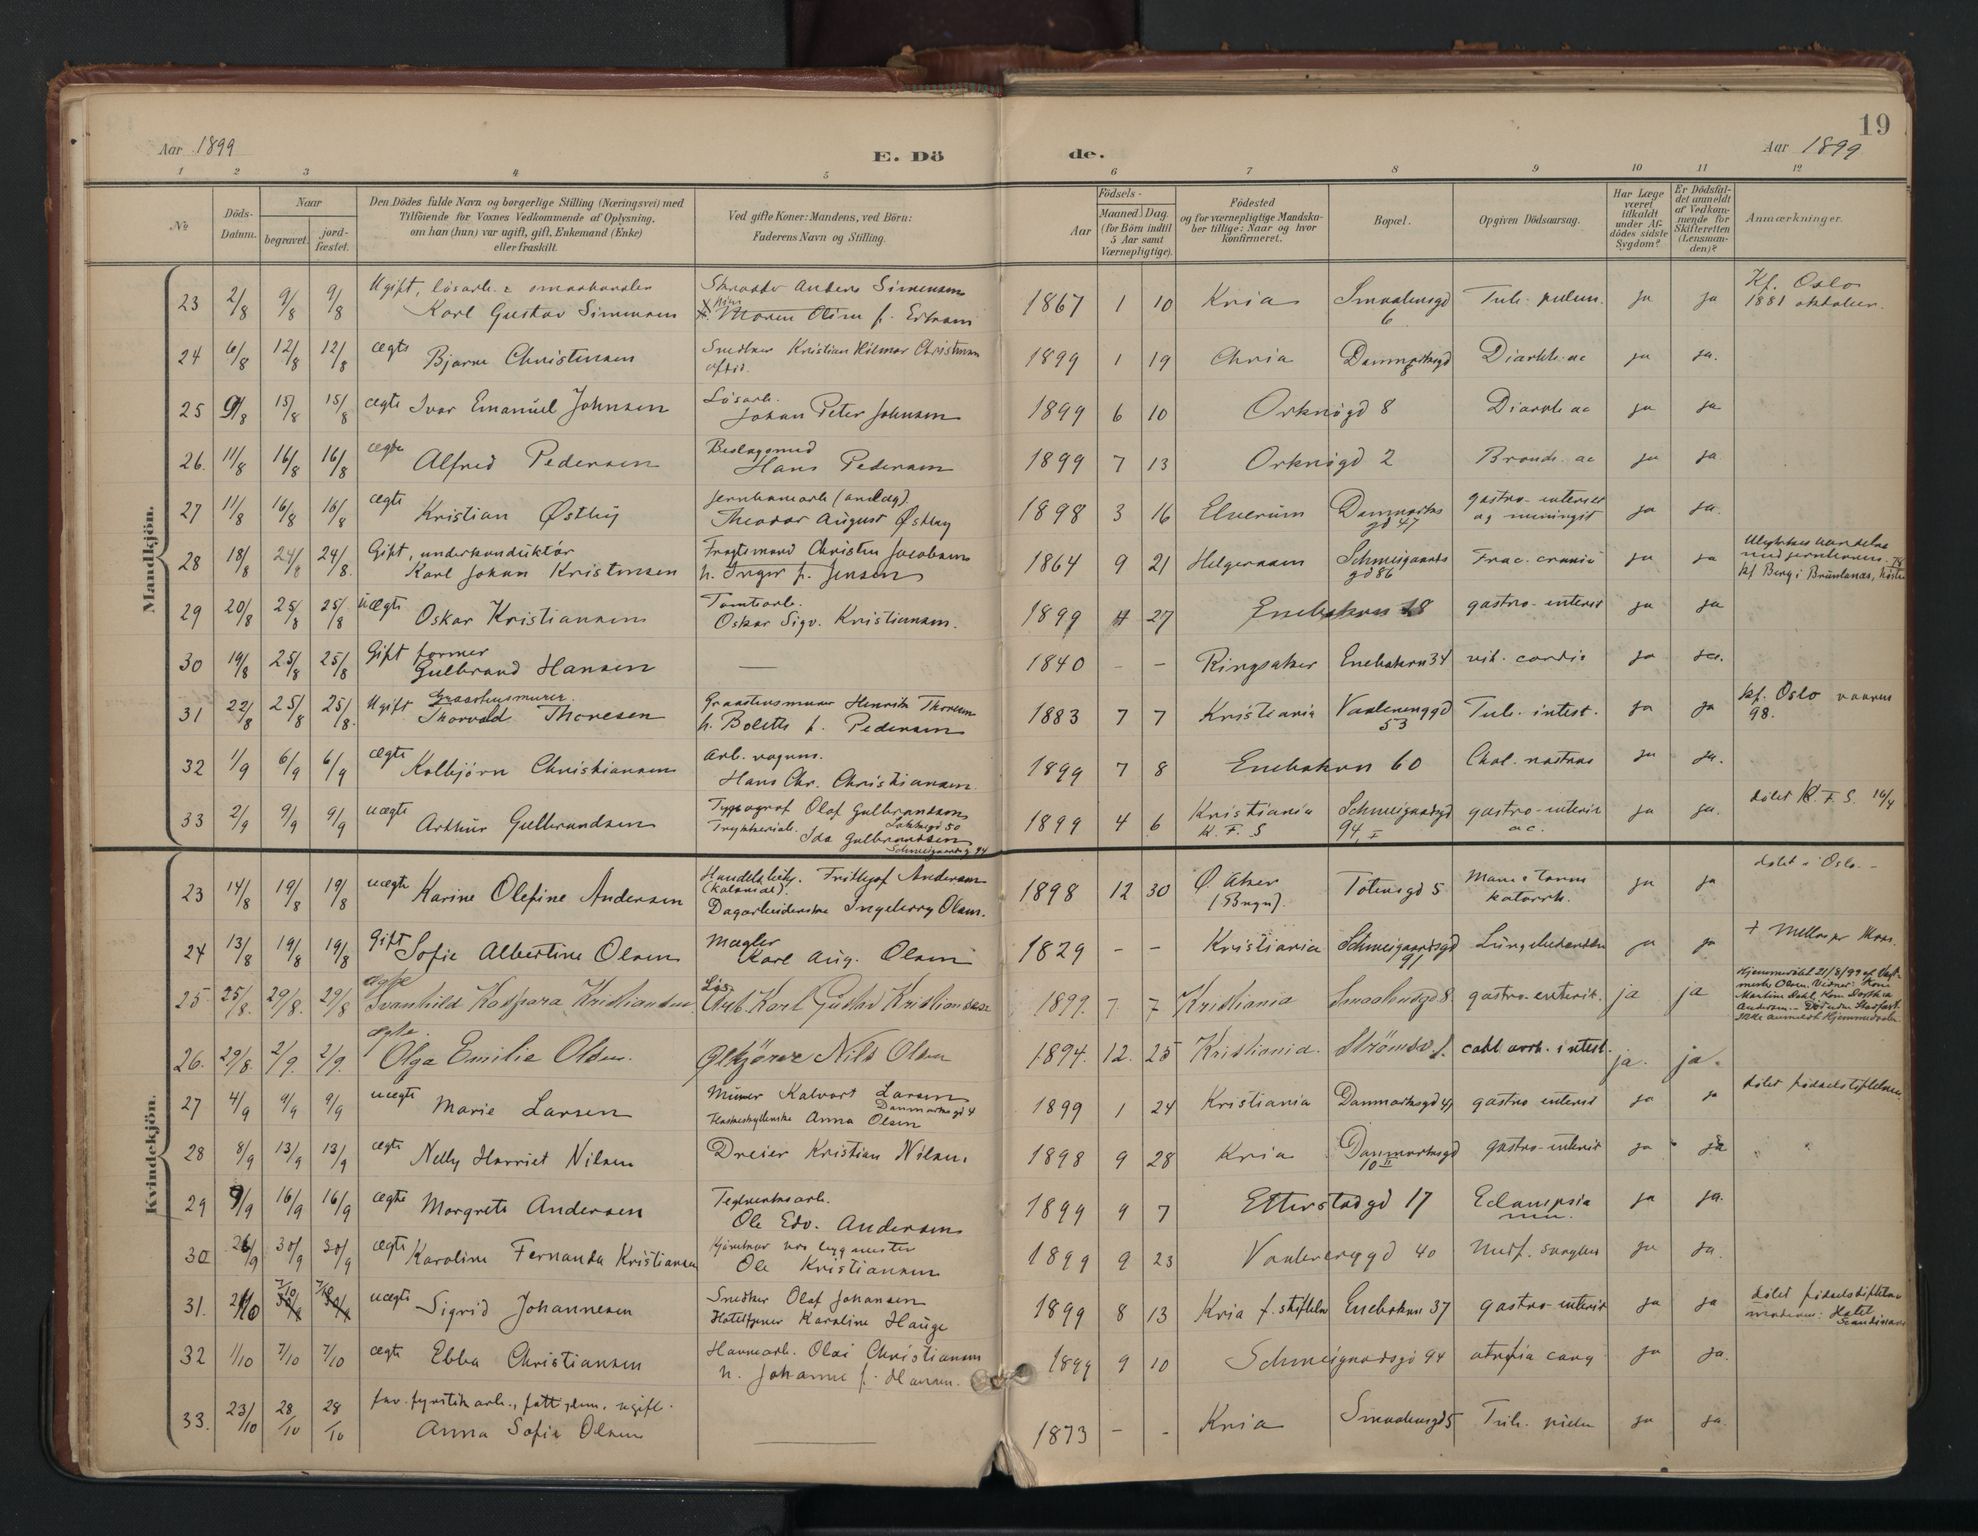 19
Aar 1899
E. Dö
de.
Aar 1899
1 2 3 4 5 6 7 8 9 10 11 12
No
Döds-Datum.
Naar
begravet.
jordfæstet.
Den Dödes fulde Navn og borgerlige Stilling (Næringsvei) med
Tilföiende for Voxnes Vedkommende af Oplysning,
om han (hun) var ugift, gift, Enkemand (Enke)
eller fraskilt.
Ved gifte Koner: Mandens, ved Börn:
Faderens Navn og Stilling.
Födsels-
Aar
Maaned Dag
(for Börn indtil
5 Aar samt
Værnepligtige).
Födested
og for værnepligtige Mandskaber tillige: Naar og hvor
konfirmeret.
Bopæl.
Opgiven Dödsaarsag.
Har Læge
været
tilkaldt
under Afdödes sidste
Sygdom?
Er Dödsfaldet anmeldt
af Vedkommende for
Skifteretten
(Lensmanden)?
Anmærkninger.
Mandkjön.
23 2/8 9/8 9/8 Ugift, løsarb. Karl Gustav Simensen Anders Simensen 1867 1 10 Kria Smaalensgd 6 Tub. pulm. ja ja Kf. Oslo 1881 oktober.
24 6/8 12/8 12/8 ægte Bjarne Christensen Snedker Kristian Hilmar Christensen 1899 1 19 Chria Danmarksgd Diarrh. ac ja ja.
25 9/8 15/8 15/8 ægte Ivar Emanuel Johnsen Løsarb. Johan Peter Johnsen 1899 6 10 Orknögd 8 Diarrh. ac ja ja
26. 11/8 16/8 16/8 ægte Alfred Pedersen Hans Pedersen 1899 7 13 Orknögd 2 Bronch. ac ja ja
27 11/8 16/8 16/8 ægte Kristian Østby Theodor August Østby 1898 3 16 Elverum Danmarksgd 47 gastro-enterit og meningit ja ja.
28 18/8 24/8 24/8. Gift, underkonduktør Karl Johan Kristensen Fragtemand Christen Jacobsen h. Inger f. Jensen 1864 9 21 Helgeroaen Schweigaardsgd 86 Frac. cranii ja ja kf Berg i Brunlanæs
29 20/8 25/8 25/8 uægte Oskar Kristiansen Tomtearb. Oskar Sigv. Kristiansen. 1899 4 27 Enebakvn 28 gastro-enterit ja ja
30 19/8 25/8 25/8 Gift former Gulbrand Hansen — 1840 - - Ringsaker Enebakvn 34 vit. cordis ja ja.
31 22/8 25/8 25/8. Ugift Thorvald Thoresen Henrik Thoresen h. Bolette f. Pedersen 1883 7 7 Kristiania Vaalerenggd 53 Tub. intest. ja ja kf. Oslo vaaren 98.
32 1/9 6/9 6/9 ægte Kolbjörn Christiansen Hans Chr. Christiansen. 1899 7 8 Enebakvn 60 Chol. nostras ja ja.
33 2/9 9/9 9/9 uægte Arthur Gulbrandsen Typograf Olaf Gulbrandsen Ida Gulbrandsen Schweigaardsgd 94 1899 4 6 Kristiania K. F. S Schweigaardsgd 94 I gastro-enterit ac. ja ja. døbt K. F. S. 16/4
Kvindekjön.
23 14/8 19/8 19/8 uægte Karine Olefine Andersen Frithjof Andersen (kolonial) Ingeborg Olsen. 1898 12 30 Ø. Aker Totensgd 5 katarrh. ja ja døbt i Oslo
24 13/8 19/8 19/8 Gift Sofie Albertine Olsen Mægler Karl Aug. Olsen 1829 - - Kristiania Schweigaardsgd 91 ja ja
25 25/8. 29/8. 29/8 ægte Svanhild Kaspara Kristiansen. Løs Arb. Karl Gustav Kristiansen 1899. 7 7 Kristiania Smaalensgd 8. gastro-enterit. ja ja Hjemmedøbt 21/8/99
26. 29/8. 2/9. 2/9. ægte. Olga Emilie Olsen. Ølkjører Nils Olsen 1894. 12. 25 Kristiania. Strømsv intest. ja. ja.
27 4/9 9/9 9/9 uægte Marie Larsen Murer Larsen Danmarksgd 4 Anna Olsen 1899 1 24 Kristiania Danmarksgd gastro enterit ja ja døbt fødselsstiftelsen
28 8/9 13/9 13/9 ægte Nelly Harriet Nilsen Dreier Kristian Nilsen. 1898 9 28 Kria Danmarksgd 10 II gastro-enterit ja ja
29 9/9 16/9 16/9 ægte Margrete Andersen Teglverksarb. Ole Edv. Andersen 1899 9 7 Etterstadgd 17 Eclampsia ja ja.
30 26/9 30/9 30/9 ægte Karoline Fernanda Kristiansen Ole Kristiansen 1899 9 23 Vaalerenggd 40 Medf. svaghed ja ja.
31. 7/10 7/10 uægte Sigrid Johannesen Snedker Olaf Johansen Karoline Hauge 1899 8 13 Kria f. stiftelse Enebakvn 37 gastro-enterit ja ja døbt fødselsstiftelsen moderen: Hotel Scandinavie
32 1/10 7/10 7/10 ægte Ebba Christiansen Havnearb. Olai Christiansen h. Johanne f. Hansen. 1899 9 10 Schweigaardsgd 94 ja ja.
33. 23/10 28/10 28/10 fyrstikarb., ugift. Anna Sofie Olsen — 1873 - - Kria Smaalensgd 5 Tub. pulm ja ja.